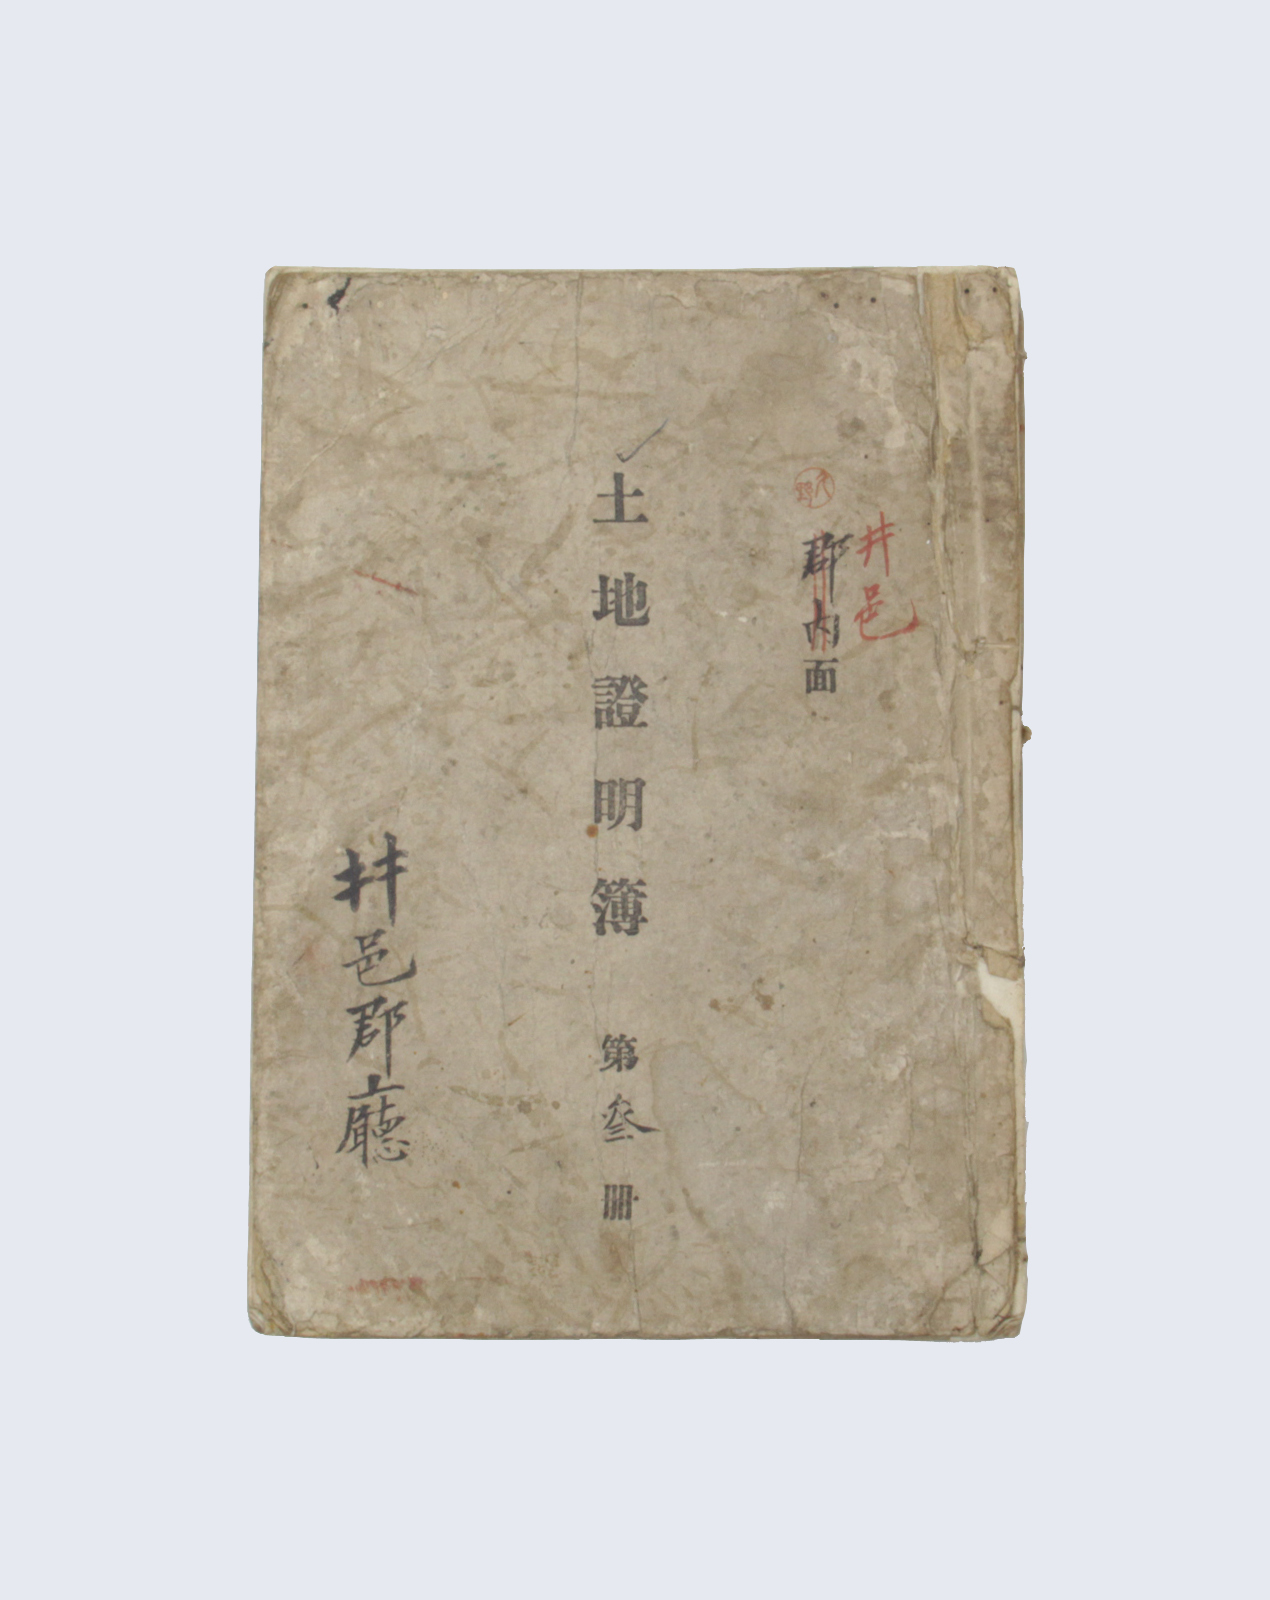 井邑
郡内面
土地證明簿 第叁冊
井邑郡廳